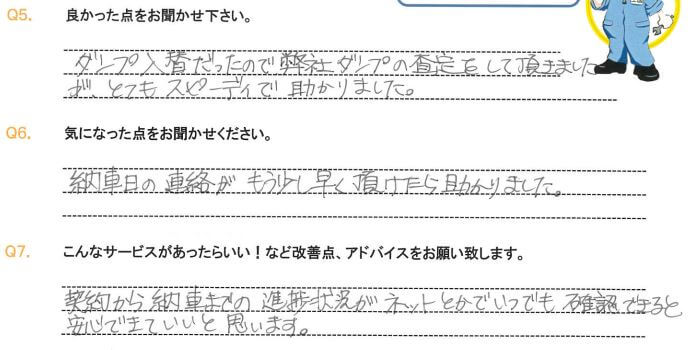 Q5. 良かった点をお聞かせ下さい。
ダンプ入替だったので弊社ダンプの査定をして頂きました
が、とてもスピーディで助かりました。
Q6. 気になった点をお聞かせください。
納車日の連絡がもう少し早く頂けたら助かりました。
Q7. こんなサービスがあったらいい！など改善点、アドバイスをお願い致します。
契約から納車までの進捗状況がネットとかでいつでも確認できると
安心できていいと思います。